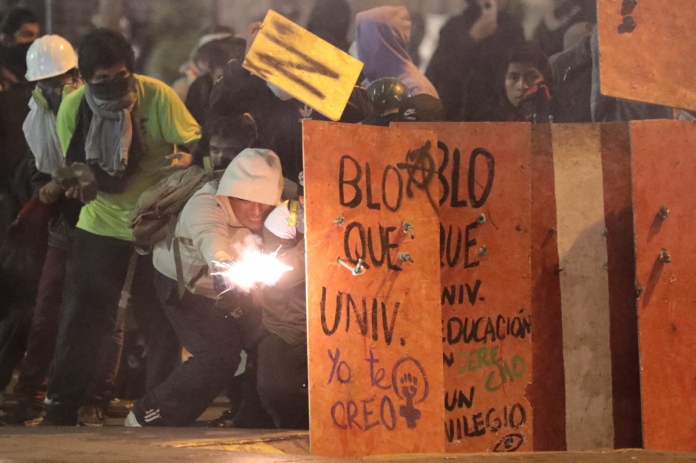 BLO
QUE
UNIV.
Yo te
CREO
BLO
QUE
NIV.
EDUCACIÓN
N DERE
CHO
UN
VILEGIO